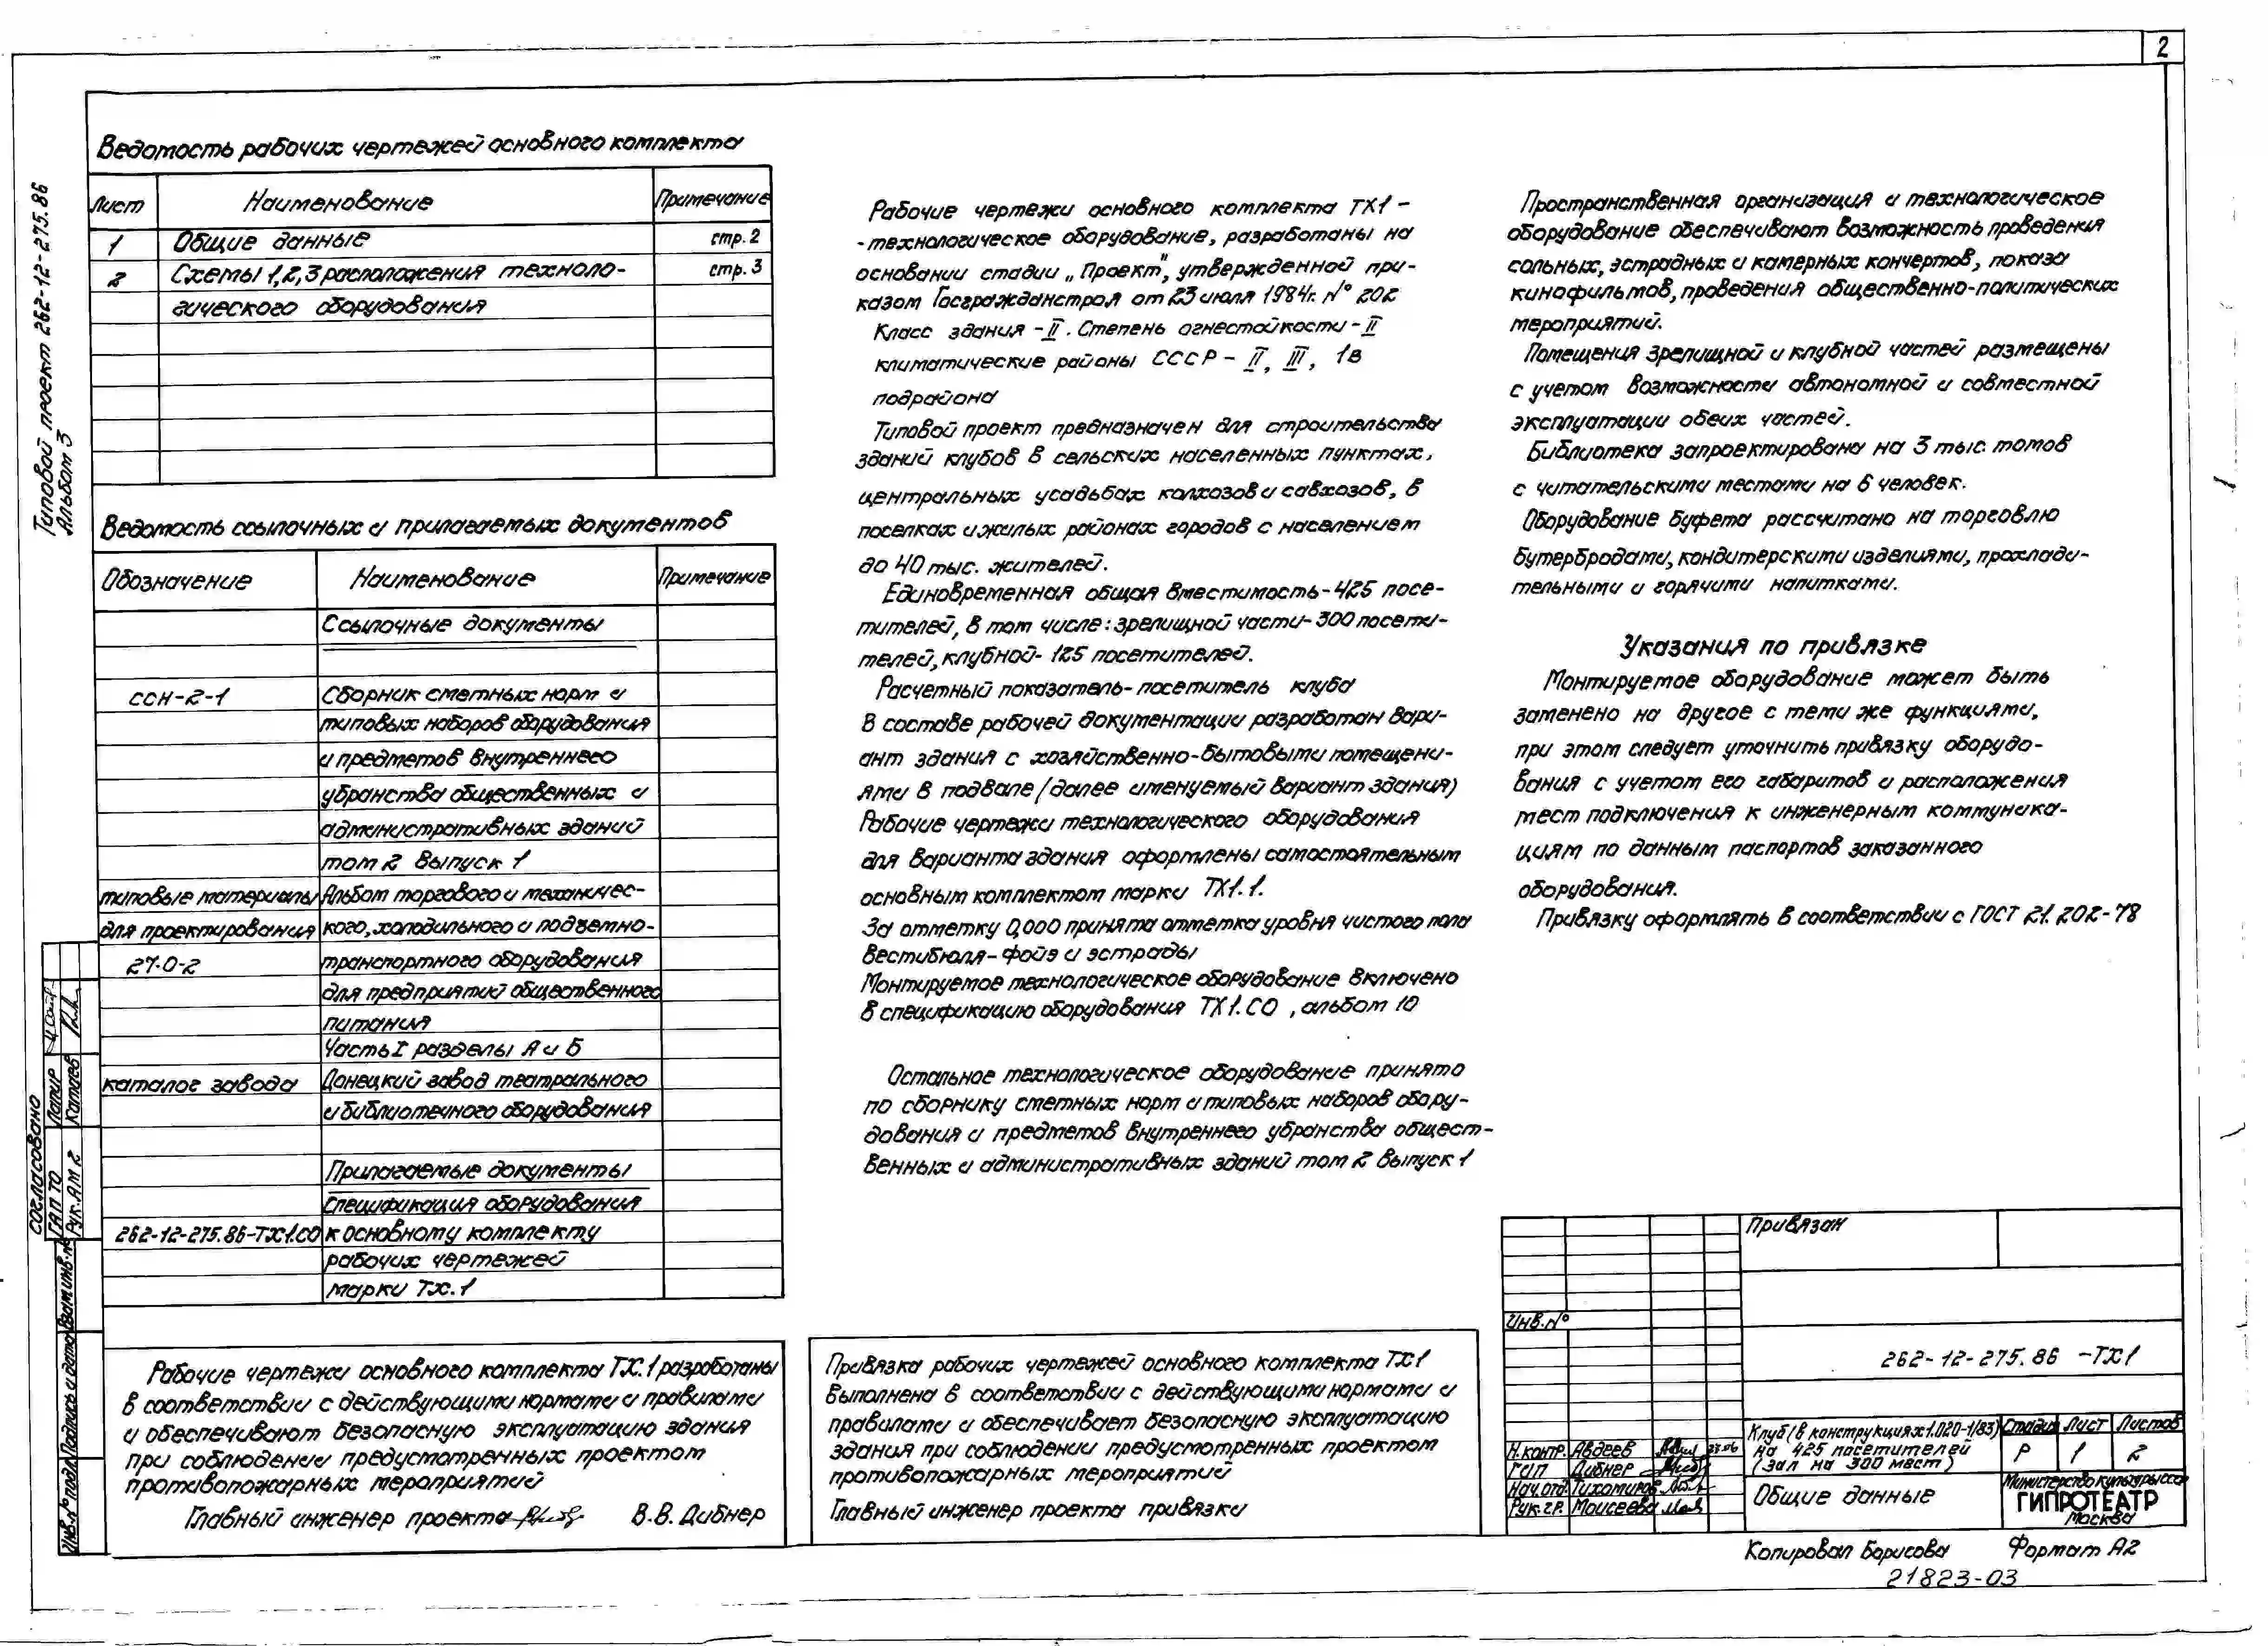 2
Типовой проект 262-12-275.86
Альбом 3
Ведомость рабочих чертежей основного комплекта
Лист Наименование Примечание
1 Общие данные стр. 2
2 Схемы 1,2,3 расположения техноло- стр. 3
гического оборудования
Ведомость ссылочных и прилагаемых документов
Обозначение Наименование Примечание
Ссылочные документы
ССН-2-1 Сборник сметных норм и
типовых наборов оборудования
и предметов внутреннего
убранства общественных и
административных зданий
том 2 выпуск 1
типовые материалы Альбом торгового и механичес-
для проектирования кого, холодильного и подъемно-
27-0-2 транспортного оборудования
для предприятий общественного
питания
Часть I разделы А и Б
каталог завода Донецкий завод театрального
и библиотечного оборудования
Прилагаемые документы
Спецификация оборудования
262-12-275.86-ТХ1.СО к основному комплекту
рабочих чертежей
марки ТХ.1
Рабочие чертежи основного комплекта ТХ.1 разработаны
в соответствии с действующими нормами и правилами
и обеспечивают безопасную эксплуатацию здания
при соблюдении предусмотренных проектом
противопожарных мероприятий
Главный инженер проекта В.В. Дибнер
Рабочие чертежи основного комплекта ТХ1 -
-технологическое оборудование, разработаны на
основании стадии „Проект", утвержденной при-
казом Госгражданстроя от 23 июля 1984г. № 202
Класс здания - II. Степень огнестойкости - II
климатические районы СССР - II, III, 1в
подрайона
Типовой проект предназначен для строительства
зданий клубов в сельских населенных пунктах,
центральных усадьбах колхозов и совхозов, в
поселках и жилых районах городов с населением
до 40 тыс. жителей.
Единовременная общая вместимость-425 посе-
тителей, в том числе: зрелищной части-300 посети-
телей, клубной- 125 посетителей.
Расчетный показатель- посетитель клуба
В составе рабочей документации разработан вари-
ант здания с хозяйственно-бытовыми помещени-
ями в подвале (далее именуемый вариант здания)
Рабочие чертежи технологического оборудования
для варианта здания оформлены самостоятельным
основным комплектом марки ТХ1.1.
За отметку 0,000 принята отметка уровня чистого пола
вестибюля-фойэ и эстрады
Монтируемое технологическое оборудование включено
в спецификацию оборудования ТХ1.СО , альбом 10
Остальное технологическое оборудование принято
по сборнику сметных норм и типовых наборов обору-
дования и предметов внутреннего убранства общест-
венных и административных зданий том 2 выпуск 1
Привязка рабочих чертежей основного комплекта ТХ1
выполнена в соответствии с действующими нормами и
правилами и обеспечивает безопасную эксплуатацию
здания при соблюдении предусмотренных проектом
противопожарных мероприятий
Главный инженер проекта привязки
Пространственная организация и технологическое
оборудование обеспечивают возможность проведения
сольных, эстрадных и камерных концертов, показа
кинофильмов, проведения общественно-политических
мероприятий.
Помещения зрелищной и клубной частей размещены
с учетом возможности автономной и совместной
эксплуатации обеих частей.
Библиотека запроектирована на 3 тыс. томов
с читательскими местами на 6 человек.
Оборудование буфета рассчитано на торговлю
бутербродами, кондитерскими изделиями, прохлади-
тельными и горячими напитками.
Указания по привязке
Монтируемое оборудование может быть
заменено на другое с теми же функциями,
при этом следует уточнить привязку оборудо-
вания с учетом его габаритов и расположения
мест подключения к инженерным коммуника-
циям по данным паспортов заказанного
оборудования.
Привязку оформлять в соответствии с ГОСТ 21.202-78
Привязан
Инв.№
262-12-275.86 -ТХ1
Клуб (в конструкциях 1.020-1/83) Стадия Лист Листов
на 425 посетителей
(зал на 300 мест)
Р 1 2
Н.контр. Авдеев 23.06
ГИП Дибнер
Нач.отд. Тихомиров
Рук.гр. Моисеева
Общие данные
Министерство культуры СССР
ГИПРОТЕАТР
Москва
Копировал Борисова Формат А2
21823-03
СОГЛАСОВАНО
ГАП ТО Лапир
Рук.АМ 2 Катаев
Взам инв.№
Подпись и дата
Инв.№подл.